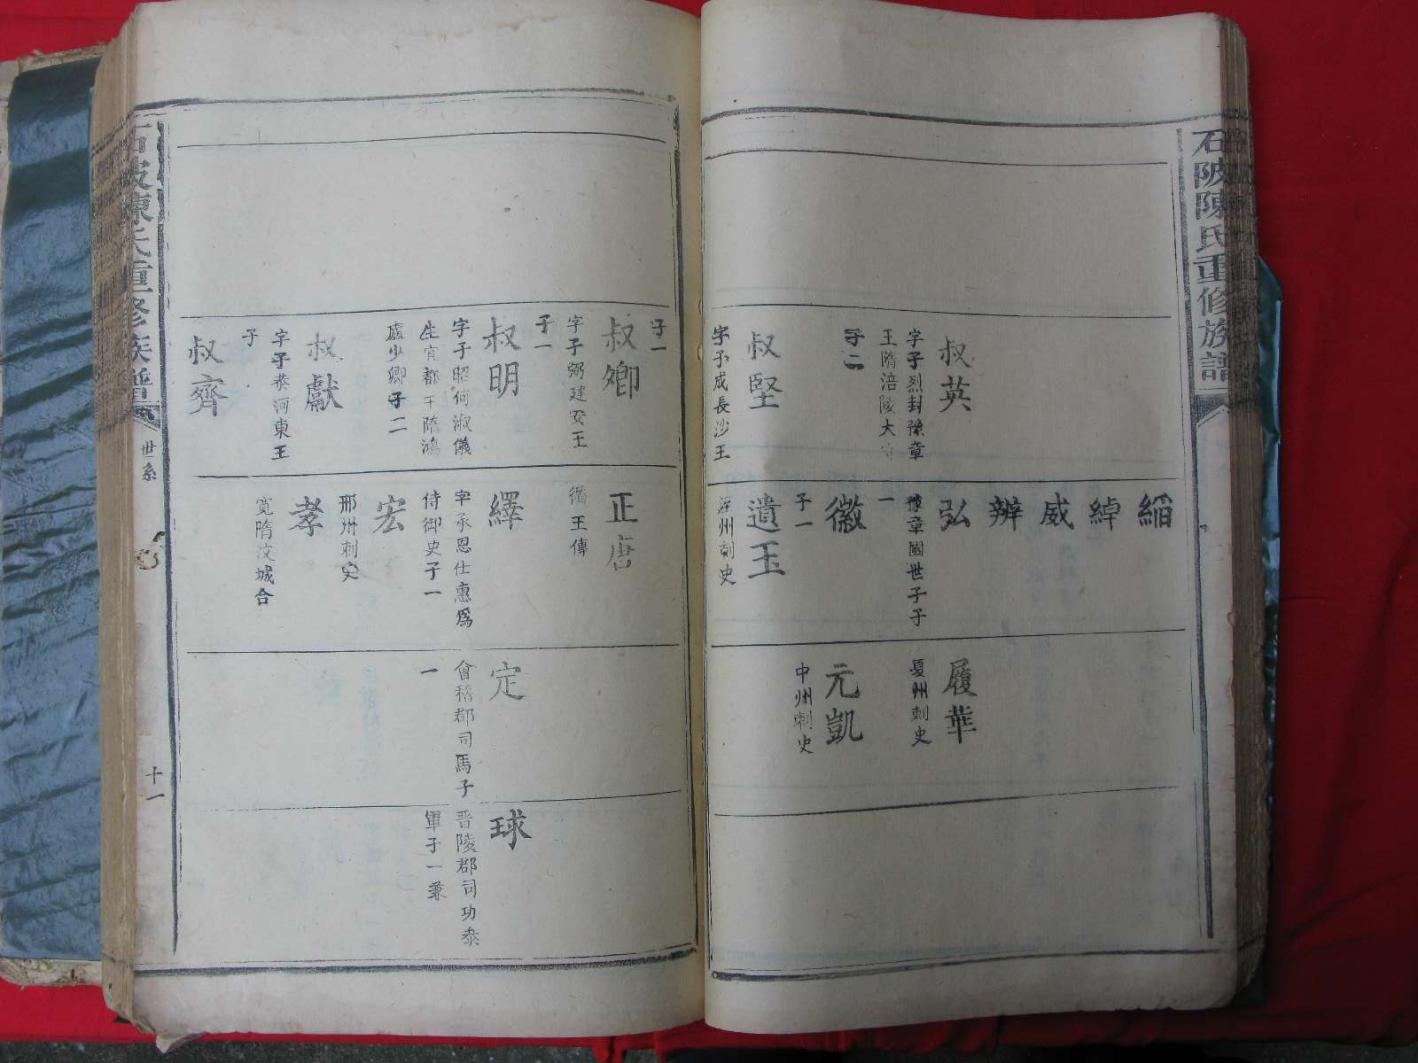 石陂陳氏重修族譜
叔英
字子烈封豫章
王隋涪陵大
子二
叔堅
字子成長沙王
緇
綽
威
辦
弘
豫章國世子子
一
徽
子一
遺玉
浮州刺史
履華
夏州刺史
元凱
中州刺史
子一
叔卿
字子弼建安王
子一
叔明
字子昭何淑儀
生宜都王隋鴻
臚少卿子二
叔獻
字子恭河東王
子
叔齊
正唐
循王傳
繹
字承恩仕惠爲
侍御史子一
宏
邢州刺史
孝
寛隋汶城合
定
會稽郡司馬子
一
球
晋陵郡司功叅
軍子一兼
石陂陳氏重修族譜
世系
十一